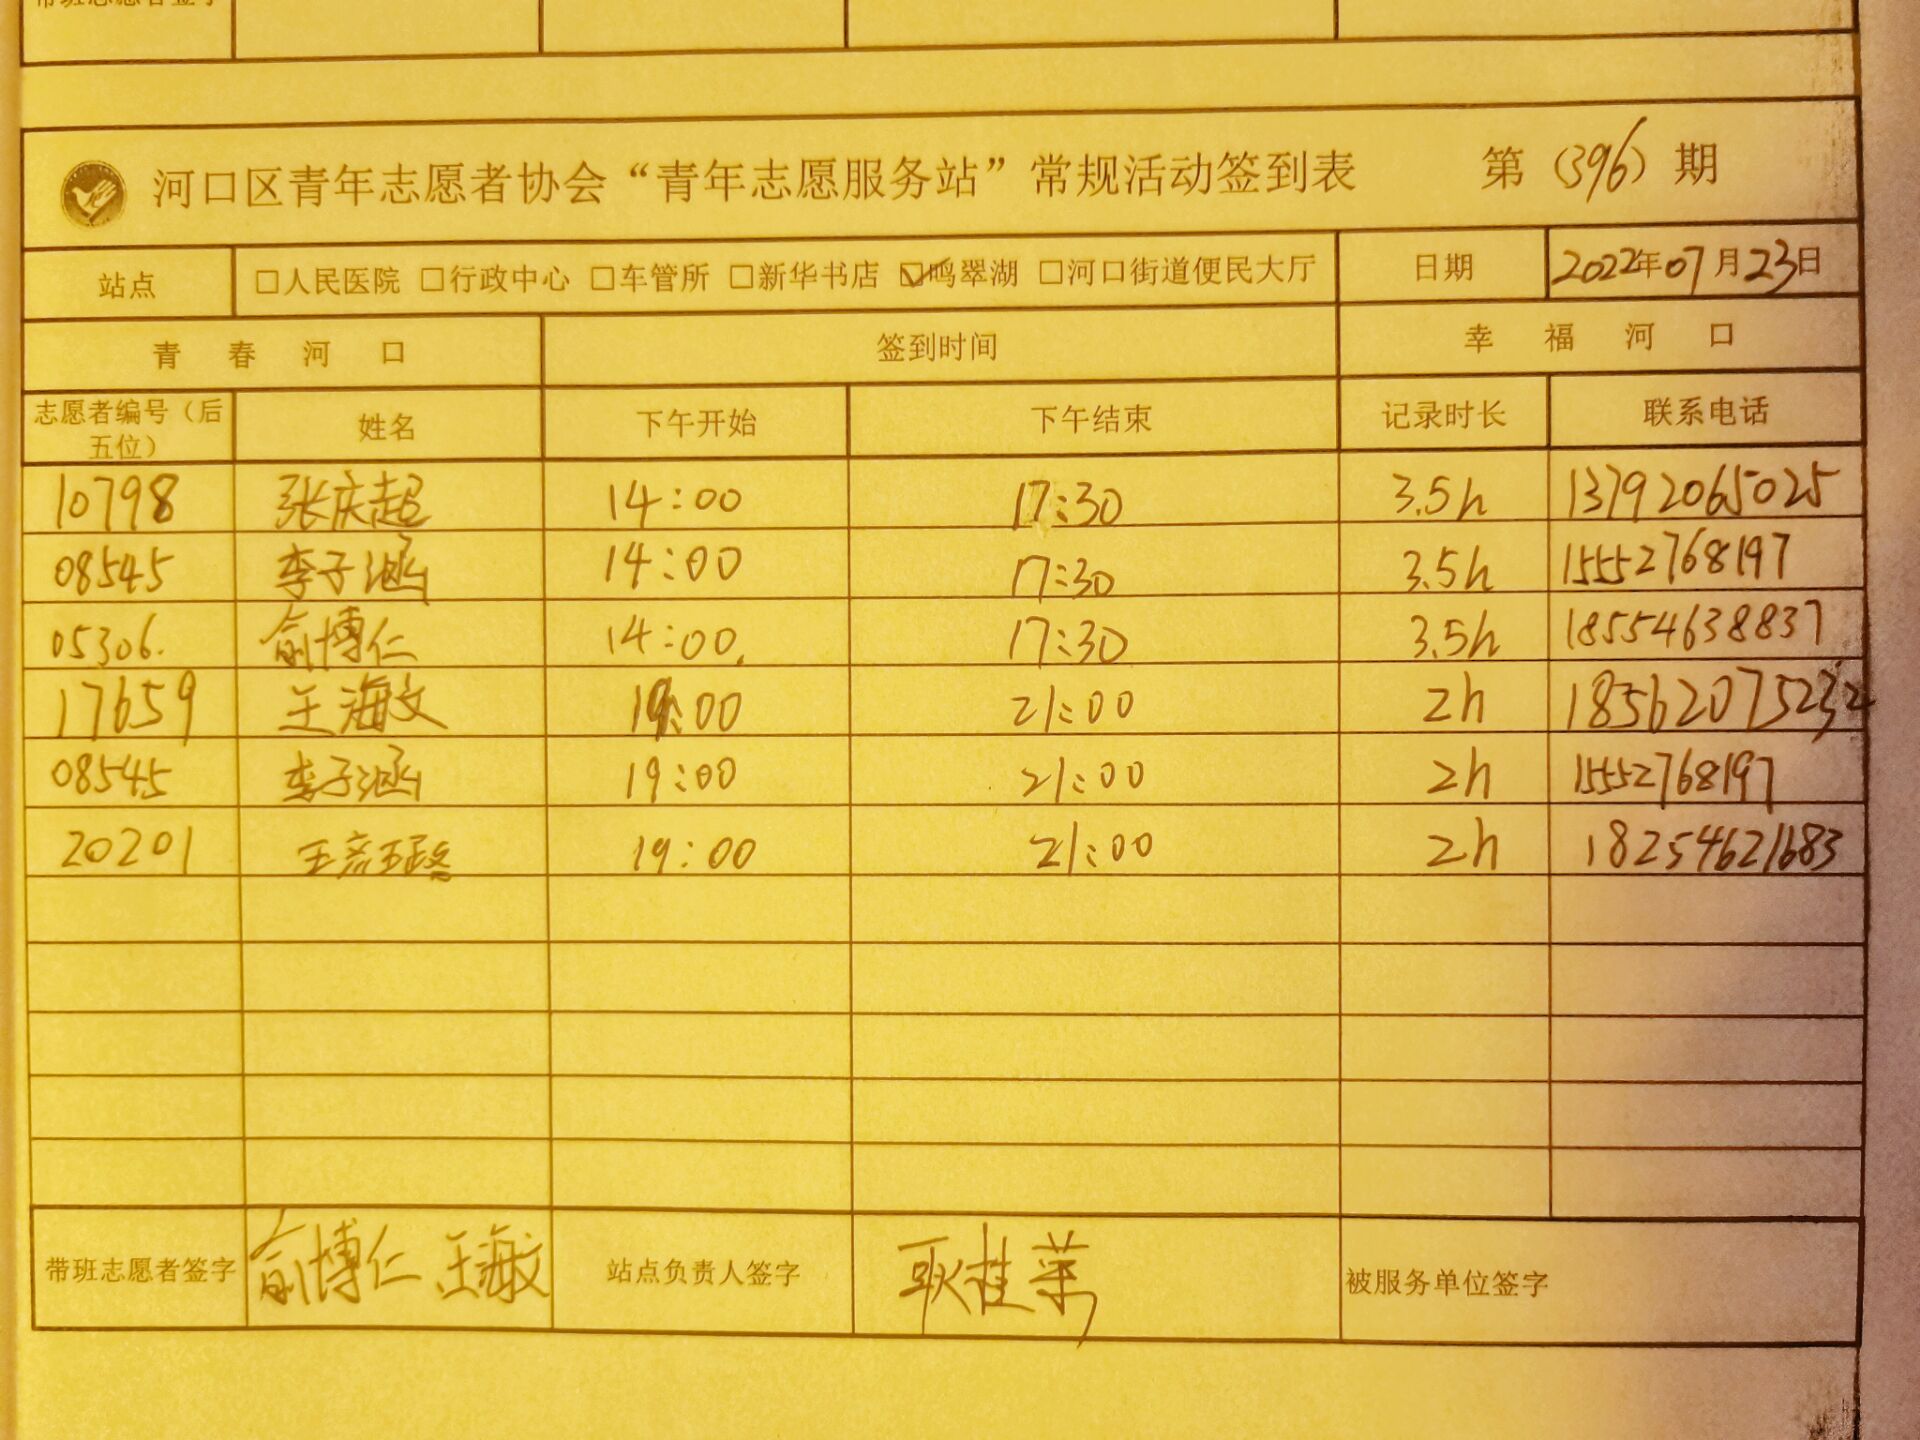 带班志愿者签字
河口区青年志愿者协会“青年志愿服务站”常规活动签到表 第（396）期
站点 □人民医院 □行政中心 □车管所 □新华书店 ☑鸣翠湖 □河口街道便民大厅 日期 2022年07月23日
青春河口 签到时间 幸福河口
志愿者编号（后五位） 姓名 下午开始 下午结束 记录时长 联系电话
10798 张庆超 14:00 17:30 3.5h 13792065025
08545 李子涵 14:00 17:30 3.5h 15552768197
05306. 俞博仁 14:00. 17:30 3.5h 18554638837
17659 王海文 19:00 21:00 2h 18562075232
08545 李子涵 19:00 21:00 2h 15552768197
20201 王彦 19:00 21:00 2h 18254621683
带班志愿者签字 俞博仁 王海文 站点负责人签字 耿桂荣 被服务单位签字